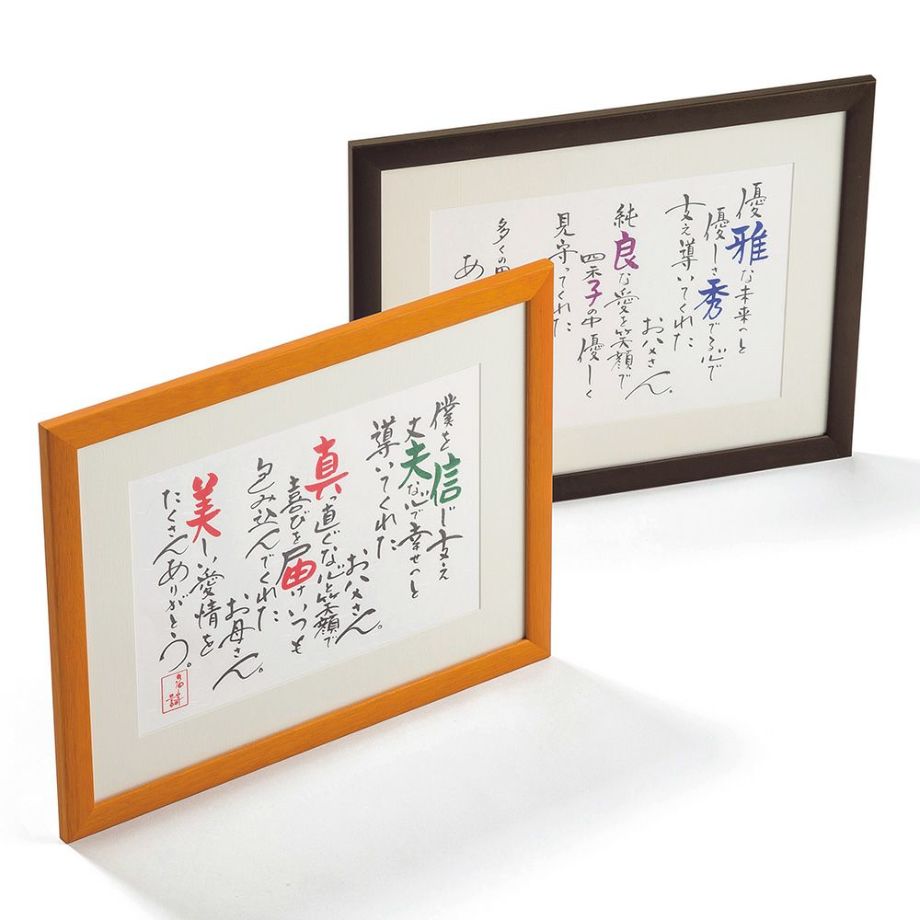 僕を信じ支え
丈夫な心で幸せへと
導いてくれた
お父さん。
真っ直ぐな心と笑顔で
喜びを届けいつも
包み込んでくれた
お母さん。
美しい愛情を
たくさんありがとう。
優雅な未来へと
優しさ秀でる心で
支え導いてくれた
お父さん。
純良な愛を笑顔で
四六子の中優しく
見守ってくれた
多くの
あ